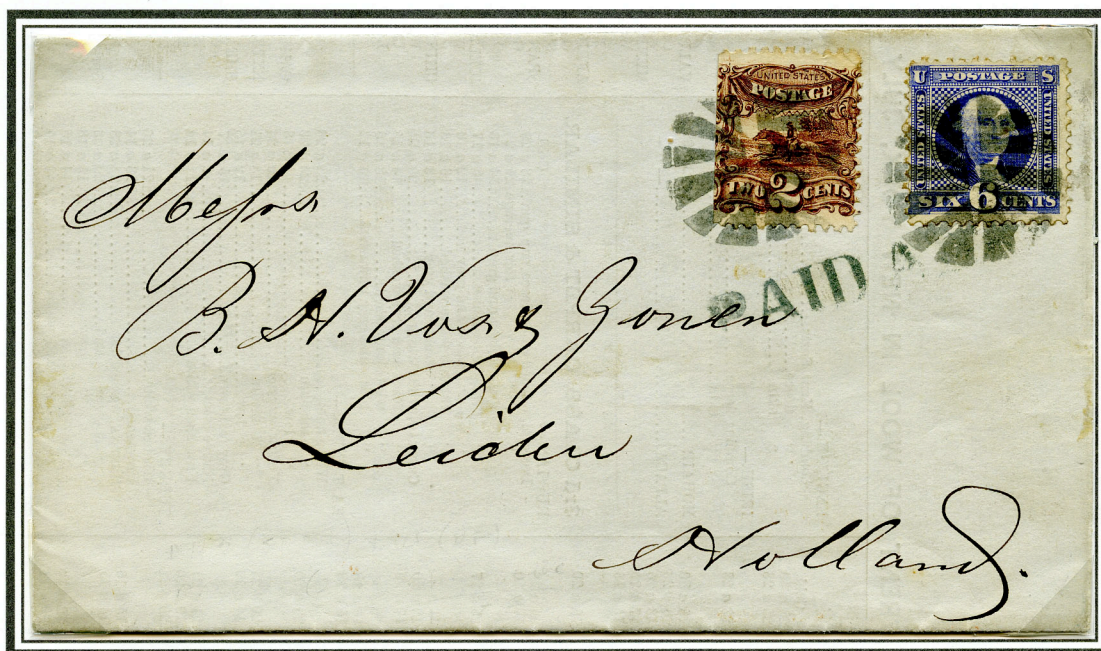 UNITED STATES
POSTAGE
TWO 2 CENTS
U POSTAGE S
UNITED STATES
UNITED STATES
SIX 6 CENTS
PAID A
Messrs
B. H. Vos & Zonen
Leiden
Holland.